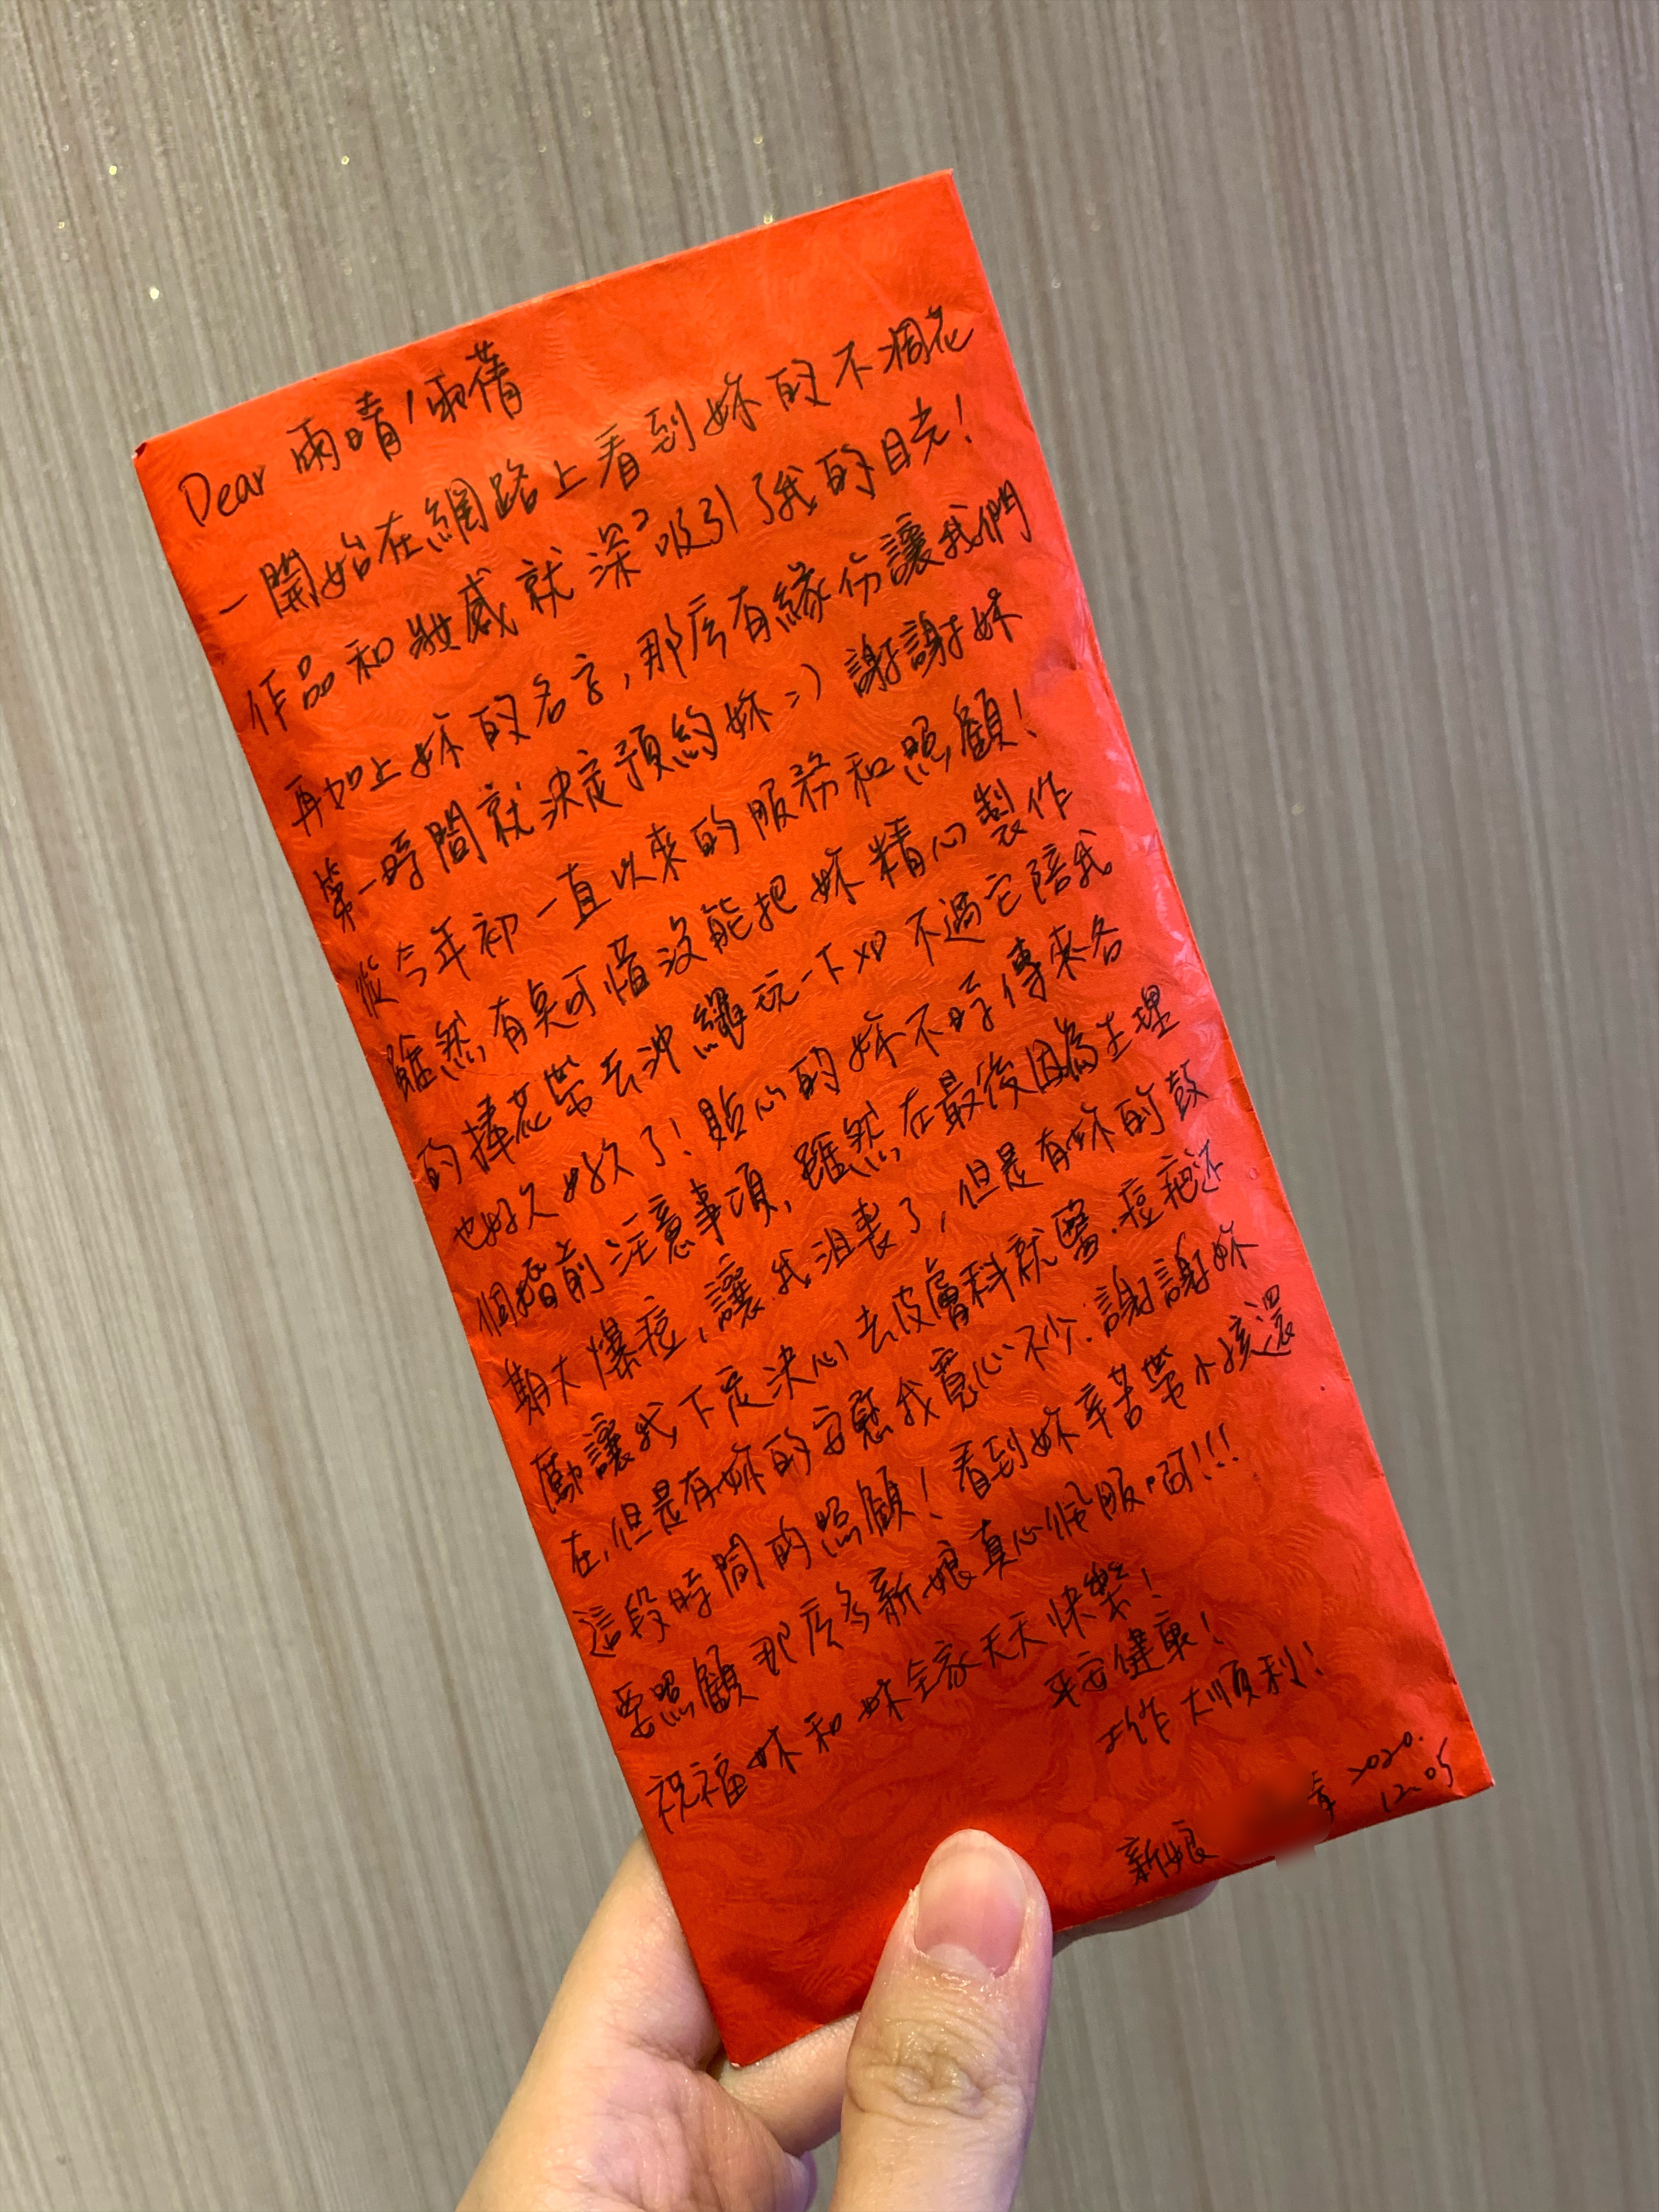 Dear 雨晴/雨蒨
一開始在網路上看到妳的不凋花
作品和妝感就深〻吸引了我的目光!
再加上妳的名字,那麼有緣份讓我們
第一時間就決定預約妳=) 謝謝妳
從今年初一直以來的服務和照顧!
雖然有點可惜沒能把妳精心製作
的捧花帶去沖繩玩一下XD 不過它陪我
也好久好久了! 貼心的妳不時傳來各
個婚前注意事項,雖然在最後因為生理
期大爆痘,讓我沮喪了,但是有妳的鼓
勵讓我下定決心去皮膚科就醫.痘疤还
在,但是有妳的安慰我寬心不少.謝謝妳
這段時間的照顧! 看到妳辛苦帶小孩還
要照顧那麼多新娘真心佩服啊!!!
祝福妳和妳全家天天快樂!
平安健康!
工作大順利!
新娘
2020.
12.05